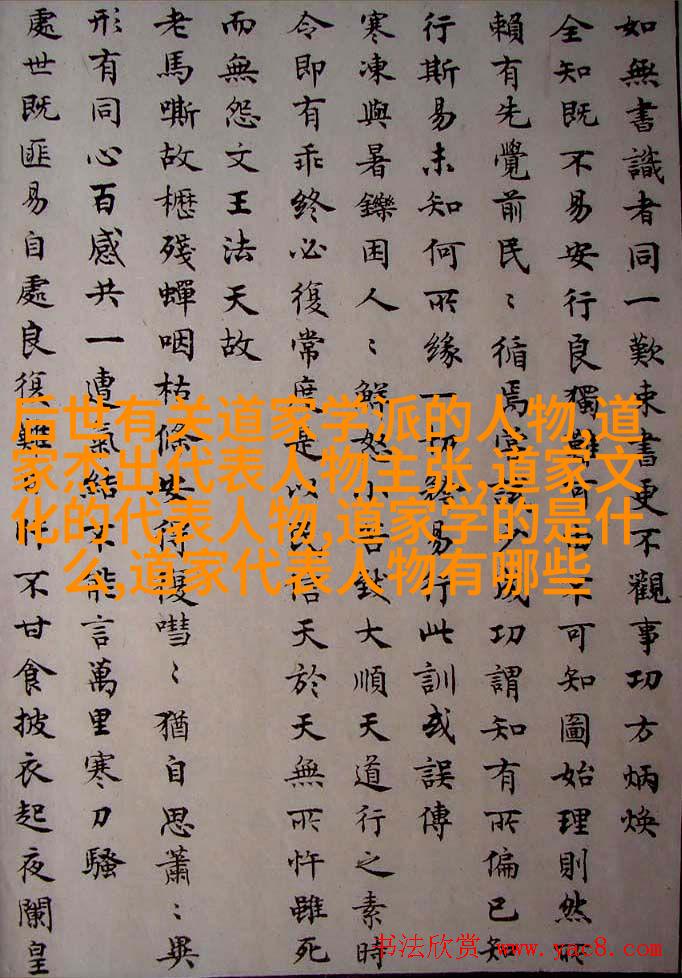 如無書識者同一歎束書更不觀事功方炳煥
全知既不易安行良獨難可不可知圖始理則然所
賴有先覺前民〻循焉當少成功謂知有所偏已知
行斯易未知何所緣一切易行此訓或誤傳
寒凍與暑鑠困人〻鮮恕小大順天道行之素時
令即有乖終必復常度是以信天於天無所忤雖死
而無怨文王法天故
老馬嘶故櫪殘蟬咽枯條安得復嘒〻猶自思蕭〻異
形有同心百感共一遭氣結不能言萬里寒刀騷
處世既匪易自處良復難不甘食披衣起夜闌皇
后世有关道家学派的人物,道
家杰出代表人物主张,道家文
化的代表人物,道家学的是什
么,道家代表人物有哪些
书法欣赏 www.yac8.com